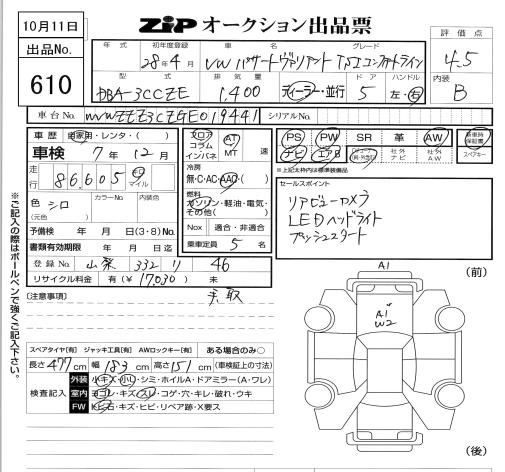 10月11日
ZIP オークション出品票
出品No.
610
年式 初年度登録 車名 グレード
28年4月 VW パサートヴァリアント TSIコンフォートライン
型式 排気量 ドア ハンドル
DBA-3CCZE 1,400 ディーラー・並行 5 左・右
評価点
4.5
内装
B
車台No. WVWZZZ3CZGE019441 シリアルNo.
車歴 自家用・レンタ・( )
車検 7年12月
走行 86,605 Km マイル
色 シロ (元色) カラーNo. 内装色
予備検 年 月 日(3・8)No.
書類有効期限 年 月 日迄
登録No. 山梨 332 リ 46
リサイクル料金 有(¥17,030) 未
フロア コラム インパネ
AT MT 速
冷房
無・C・AC・AAC・( )
燃料
ガソリン・軽油・電気・その他( )
Nox 適合・非適合
乗車定員 5 名
PS PW SR 革 AW 新車時保証書
ナビ エアB 社外ナビ 社外A.W スペアキー
*上記太枠内は標準装備品
セールスポイント
リアビューカメラ
LEDヘッドライト
プッシュスタート
[注意事項]
手、取
(前)
A1
A1
W2
(後)
スペアタイヤ[有] ジャッキ工具[有] AWロックキー[有] ある場合のみ○
長さ477cm 幅183cm 高さ151cm (車検証上の寸法)
検査記入
外装 小キズ・小凹・シミ・ホイルA・ドアミラー(A・ワレ)
室内 ヨゴレ・キズ・スレ・コゲ・穴・キレ・破れ・ウキ
FW 飛石・キズ・ヒビ・リペア跡・X要ス
※ご記入の際はボールペンで強くご記入下さい。